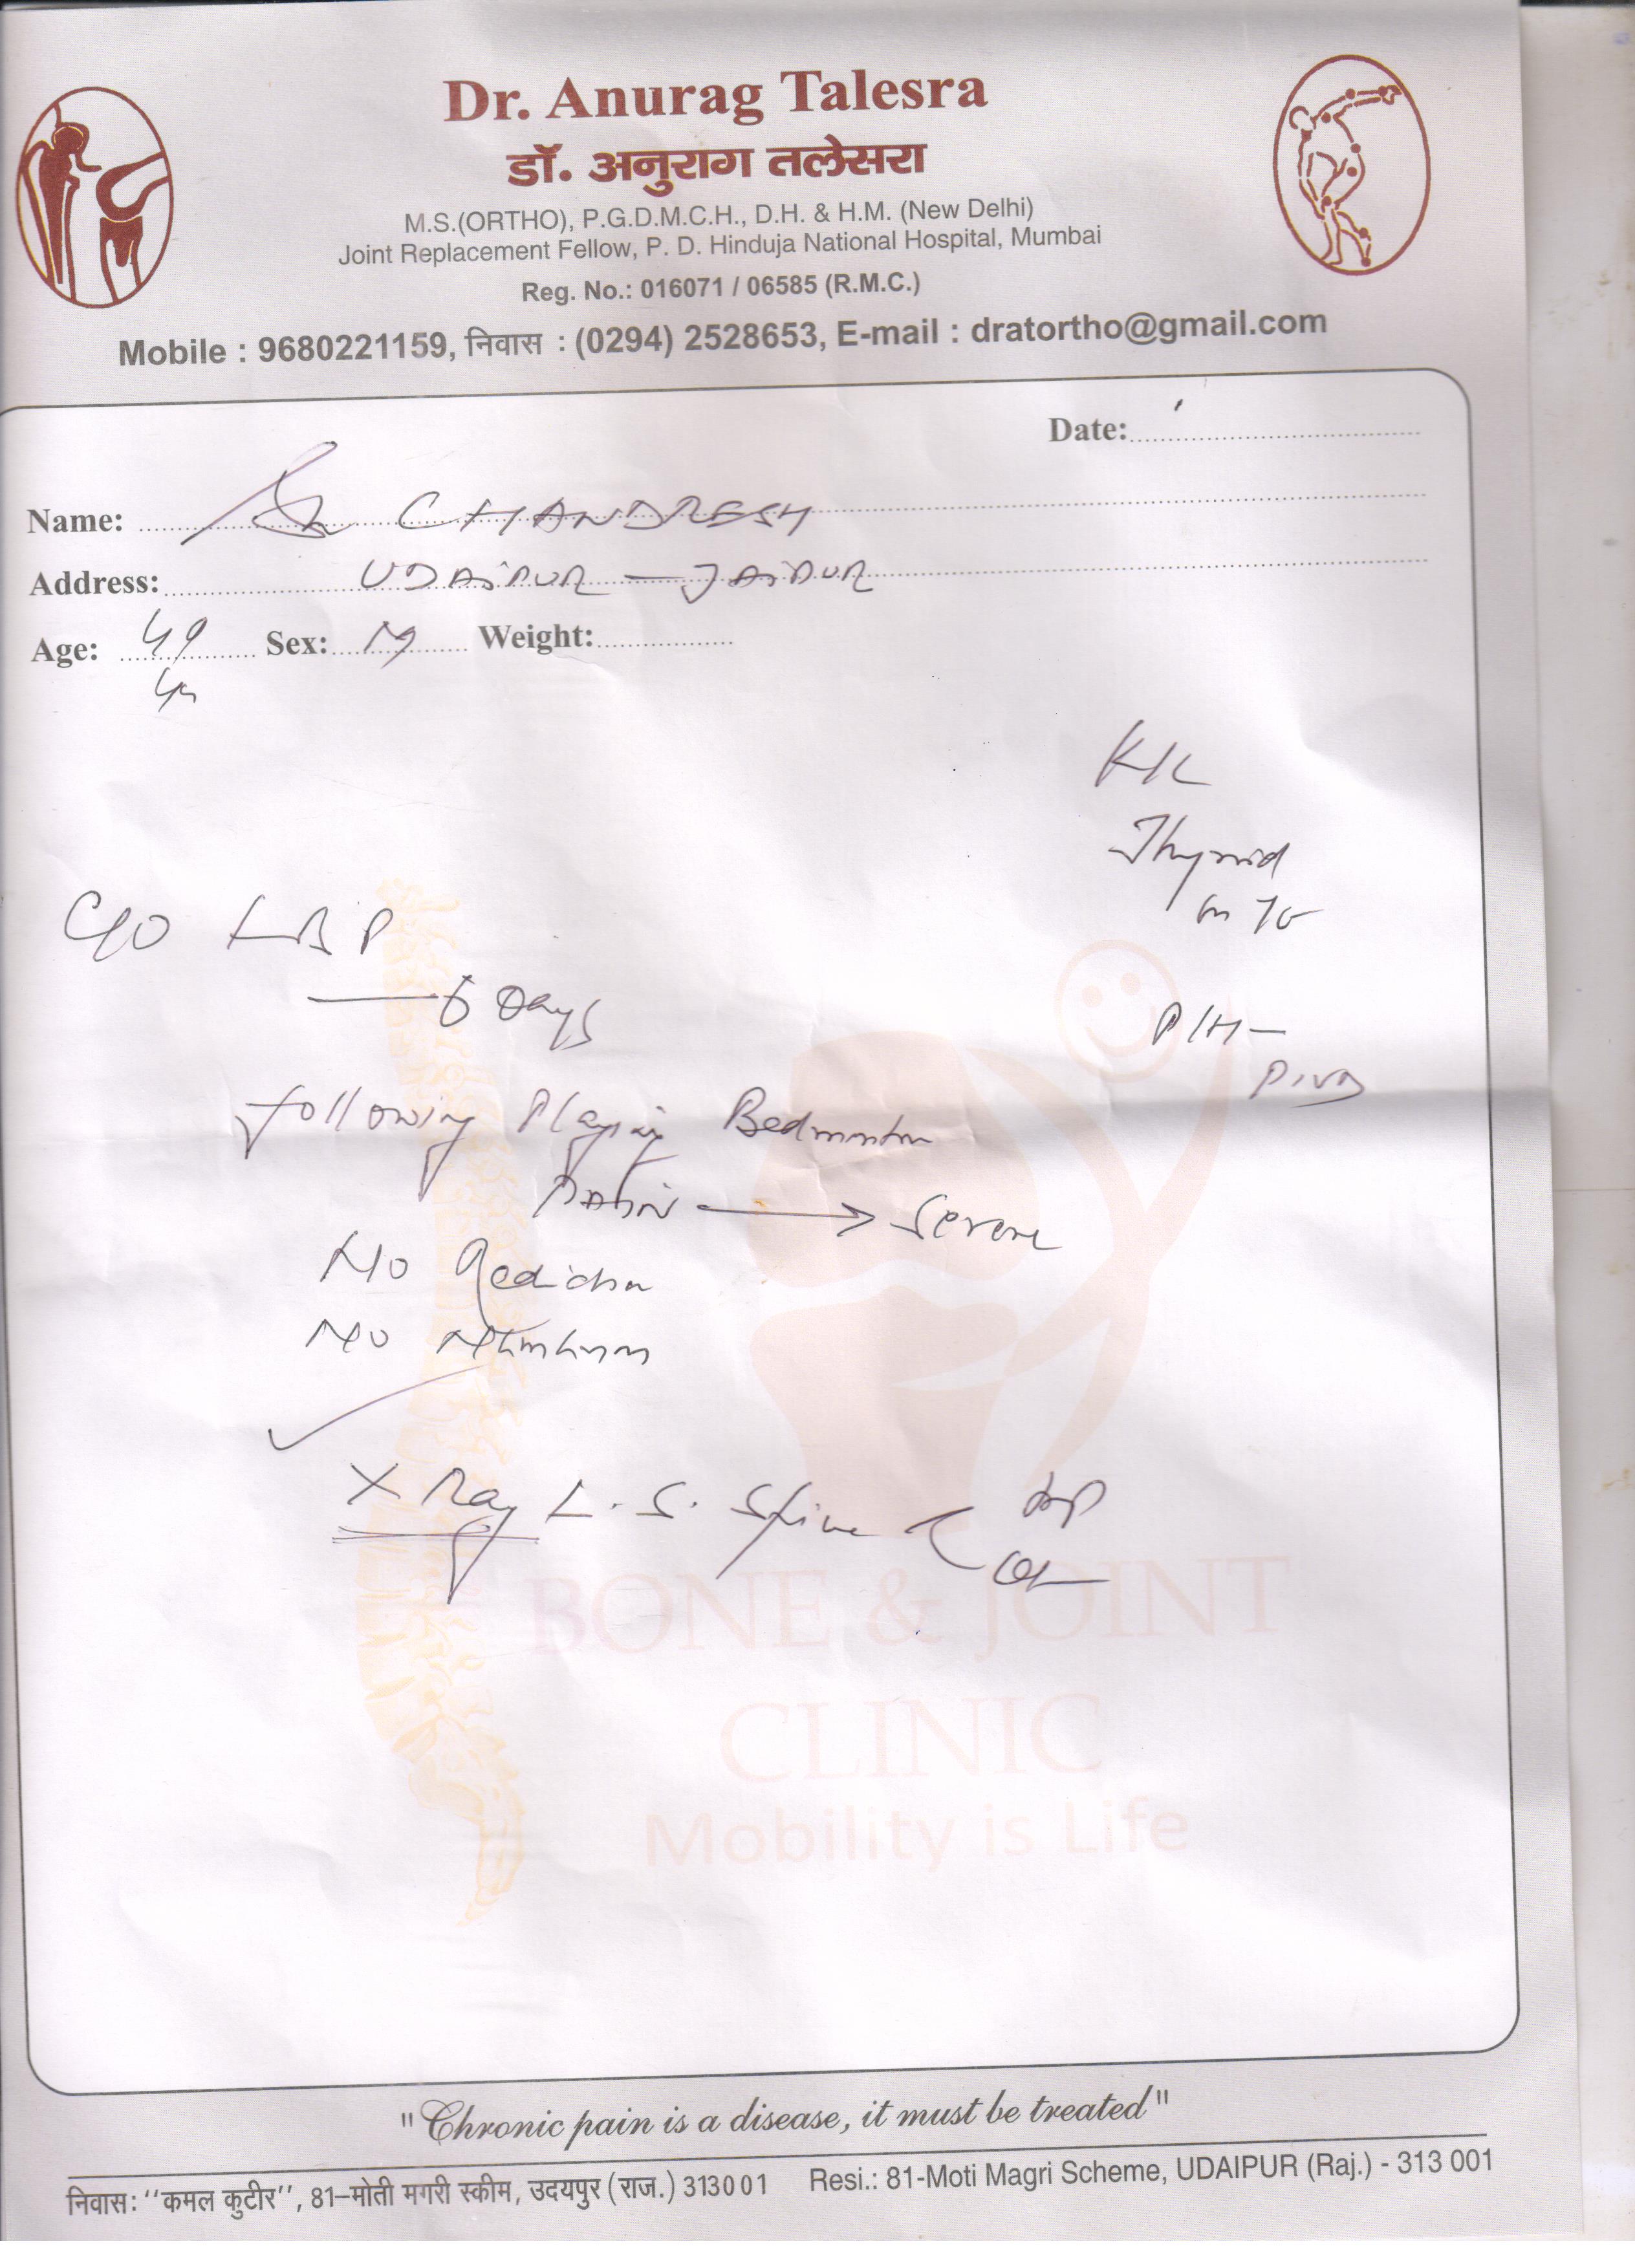 Dr. Anurag Talesra
डॉ. अनुराग तलेसरा
M.S.(ORTHO), P.G.D.M.C.H., D.H. & H.M. (New Delhi)
Joint Replacement Fellow, P. D. Hinduja National Hospital, Mumbai
Reg. No.: 016071 / 06585 (R.M.C.)
Mobile : 9680221159, निवास : (0294) 2528653, E-mail : dratortho@gmail.com
Date:
Name: CHANDRESH
Address: UDAIPUR — JAIPUR
Age: 49 Sex: M Weight:
K/C
Thyroid
C/O LBP
— 6 Days
P/H —
PIVD
following Playing Badminton
PAIN → Severe
No Radiation
No Numbness
X Ray L.S. Spine AP
BONE & JOINT
CLINIC
Mobility is Life
"Chronic pain is a disease, it must be treated"
निवास: ''कमल कुटीर'', 81–मोती मगरी स्कीम, उदयपुर (राज.) 313001 Resi.: 81-Moti Magri Scheme, UDAIPUR (Raj.) - 313 001